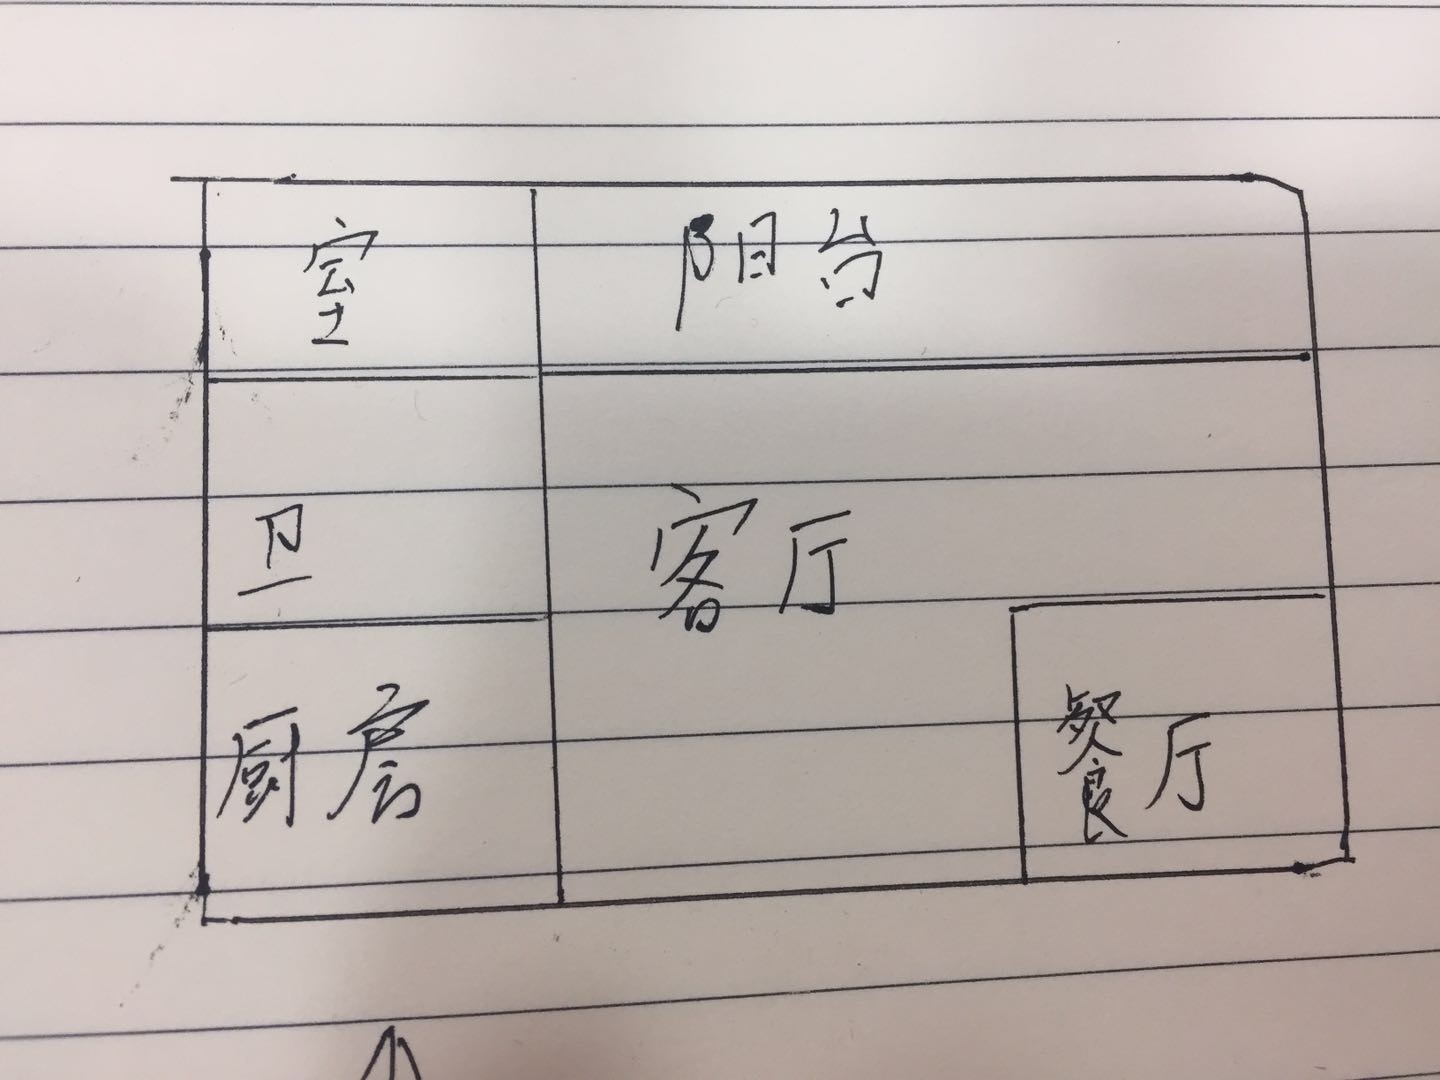 室
阳台
卫
客厅
厨房
餐厅